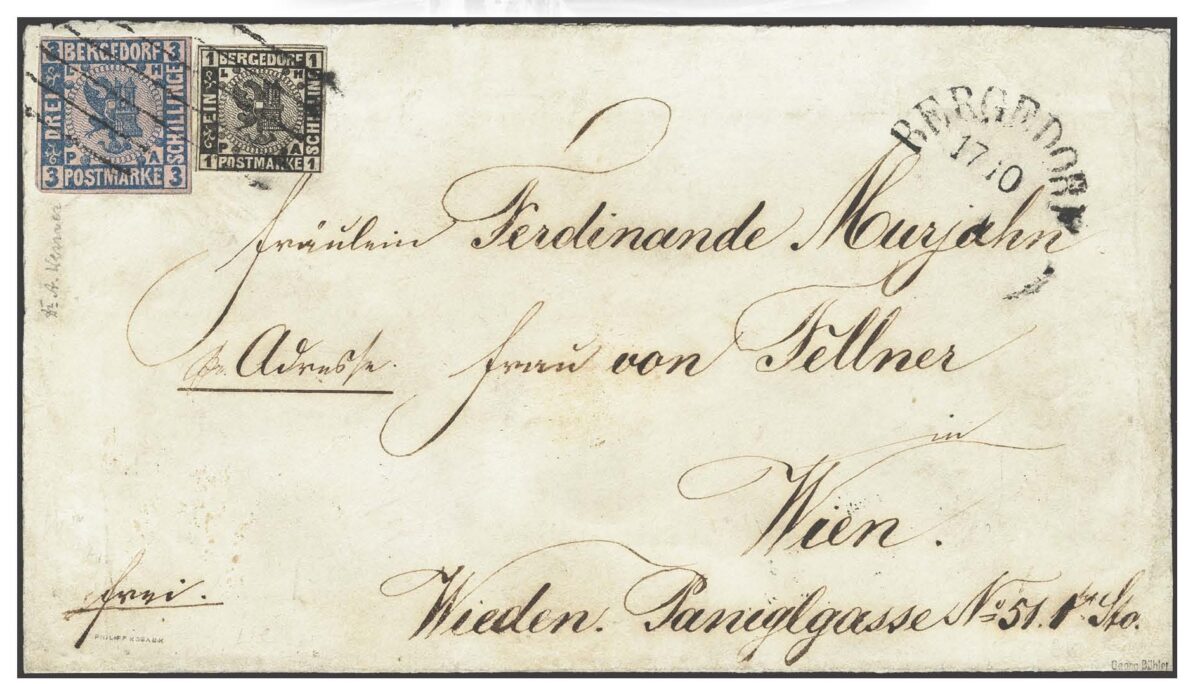 3 BERGEDORF 3
L H
DREI SCHILLINGE
P A
3 POSTMARKE 3
1 BERGEDORF 1
L H
EIN SCHILLING
P A
1 POSTMARKE 1
BERGEDORF
17 10
Dr. A. Kenner
Fräulein Ferdinande Murjahn
Adresse. Frau von Fellner
in
Wien.
frei.
Wieden. Paniglgasse No 51. 1ter Sto.
Georg Bühler